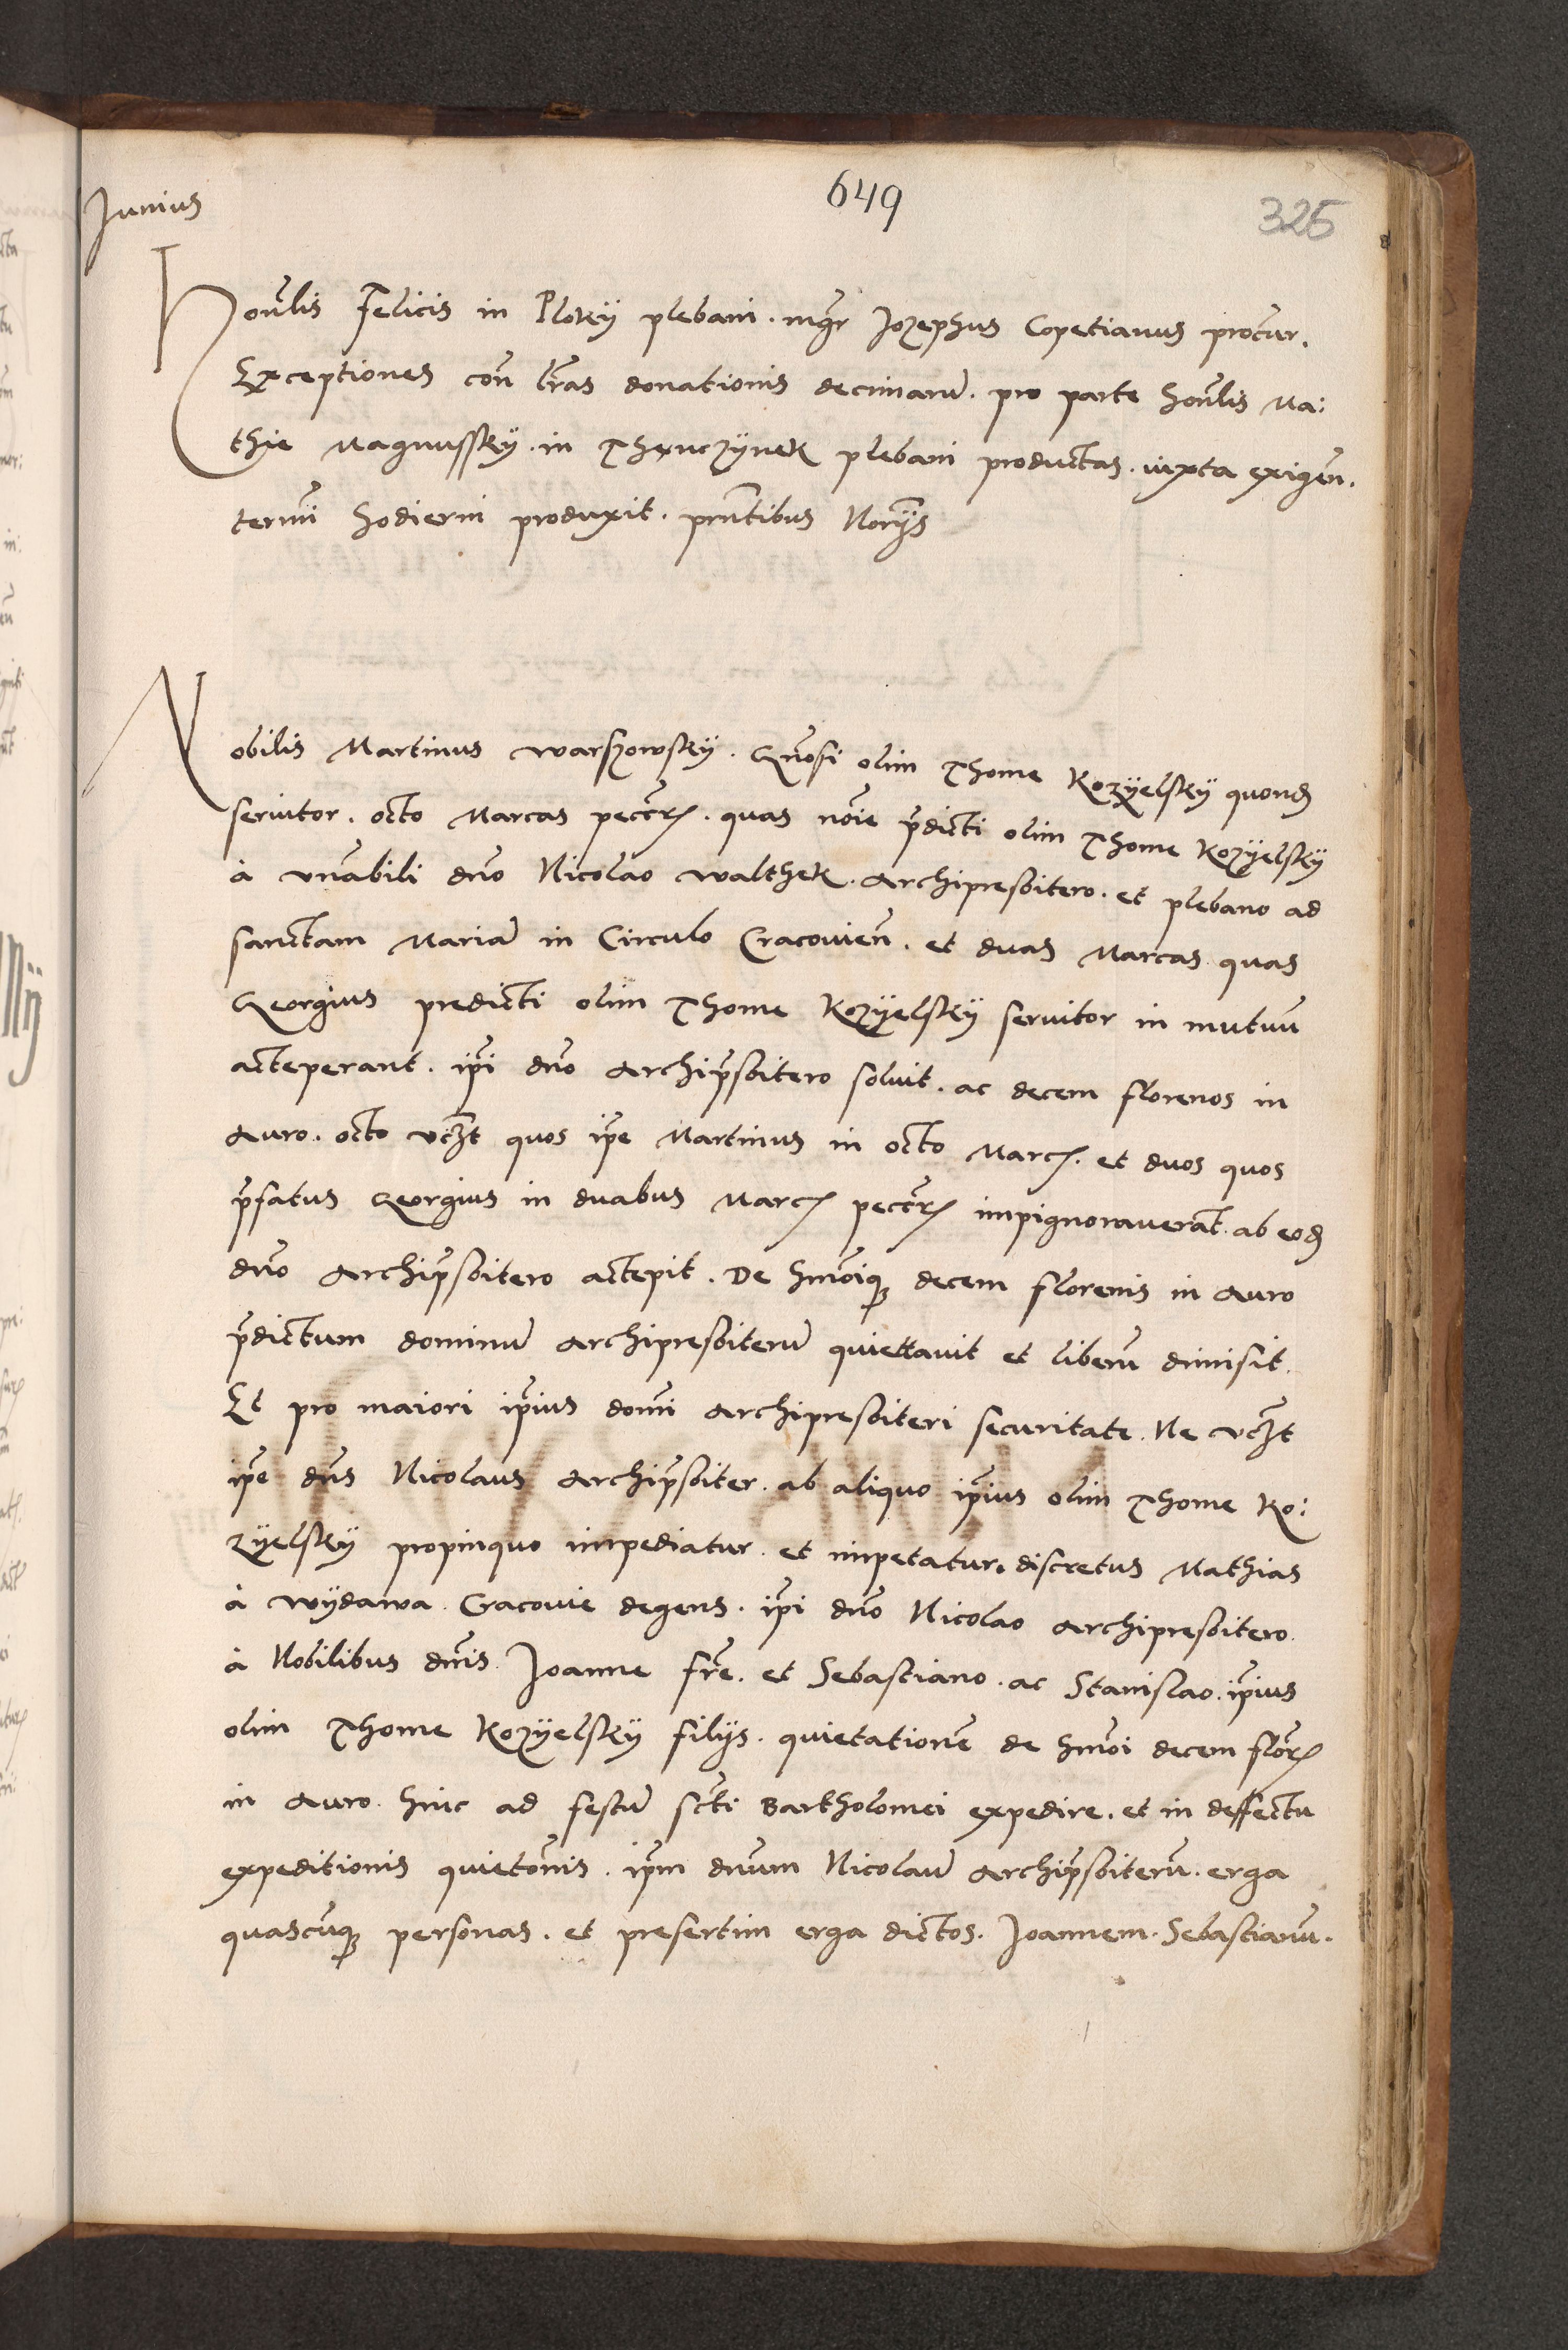 Junius
649
325
Honlis Felicis in Ploky plebani. mgr Jozephus Copetianus procur.
Exceptiones con lras donationis decimaru. pro parte honlis Ma:
thie Magnussky. in Thenczynek plebani productas. iuxta exigen.
termi hodierni produxit. pntibus Norys
Nobilis Martinus Warszowsky. Gnosi olim Thome Kozyelsky quond
servitor. octo Marcas peccr. quas noie pdicti olim Thome Kozyelsky
à vnabili dno Nicolao Walthek. Archipresbitero. et plebano ad
sanctam Maria in Circulo Cracovien. et duas Marcas quas
Georgius predicti olim Thome Kozyelsky servitor in mutuu
acceperant. ipi dno Archipsbitero solvit. ac decem florenos in
Auro. octo vczt quos ipe Martinus in octo Marc. et duos quos
pfatus Georgius in duabus Marc peccr impignoraverat. ab eod
dno Archipsbitero accepit. De hmoiq decem florenis in Auro
pdictum dominu Archipresbiteru quiettavit et liberu dimisit.
Et pro maiori ipius domi Archipresbiteri securitate. Ne vczt
ipe dns Nicolaus Archipsbiter. ab aliquo ipius olim Thome Ko:
zyelsky propinquo impediatur. et impetatur. discretus Mathias
à Wydawa. Cracovie degens. ipi dno Nicolao Archipresbitero.
à Nobilibus dnis. Joanne fre. et Sebastiano. ac Stanislao. ipius
olim Thome Kozyelsky filys. quietatione de hmoi decem flor
in Auro. hinc ad festu scti Bartholomei expedire. et in deffectu
expeditionis quietonis. ipm dnum Nicolau Archipsbiteru. erga
quascuq personas. et presertim erga dictos. Joannem. Sebastianu.